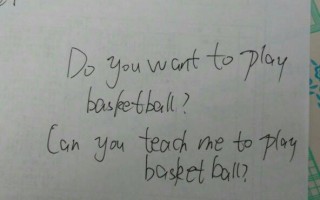 Do you want to play
basketball?
Can you teach me to play
basket ball?